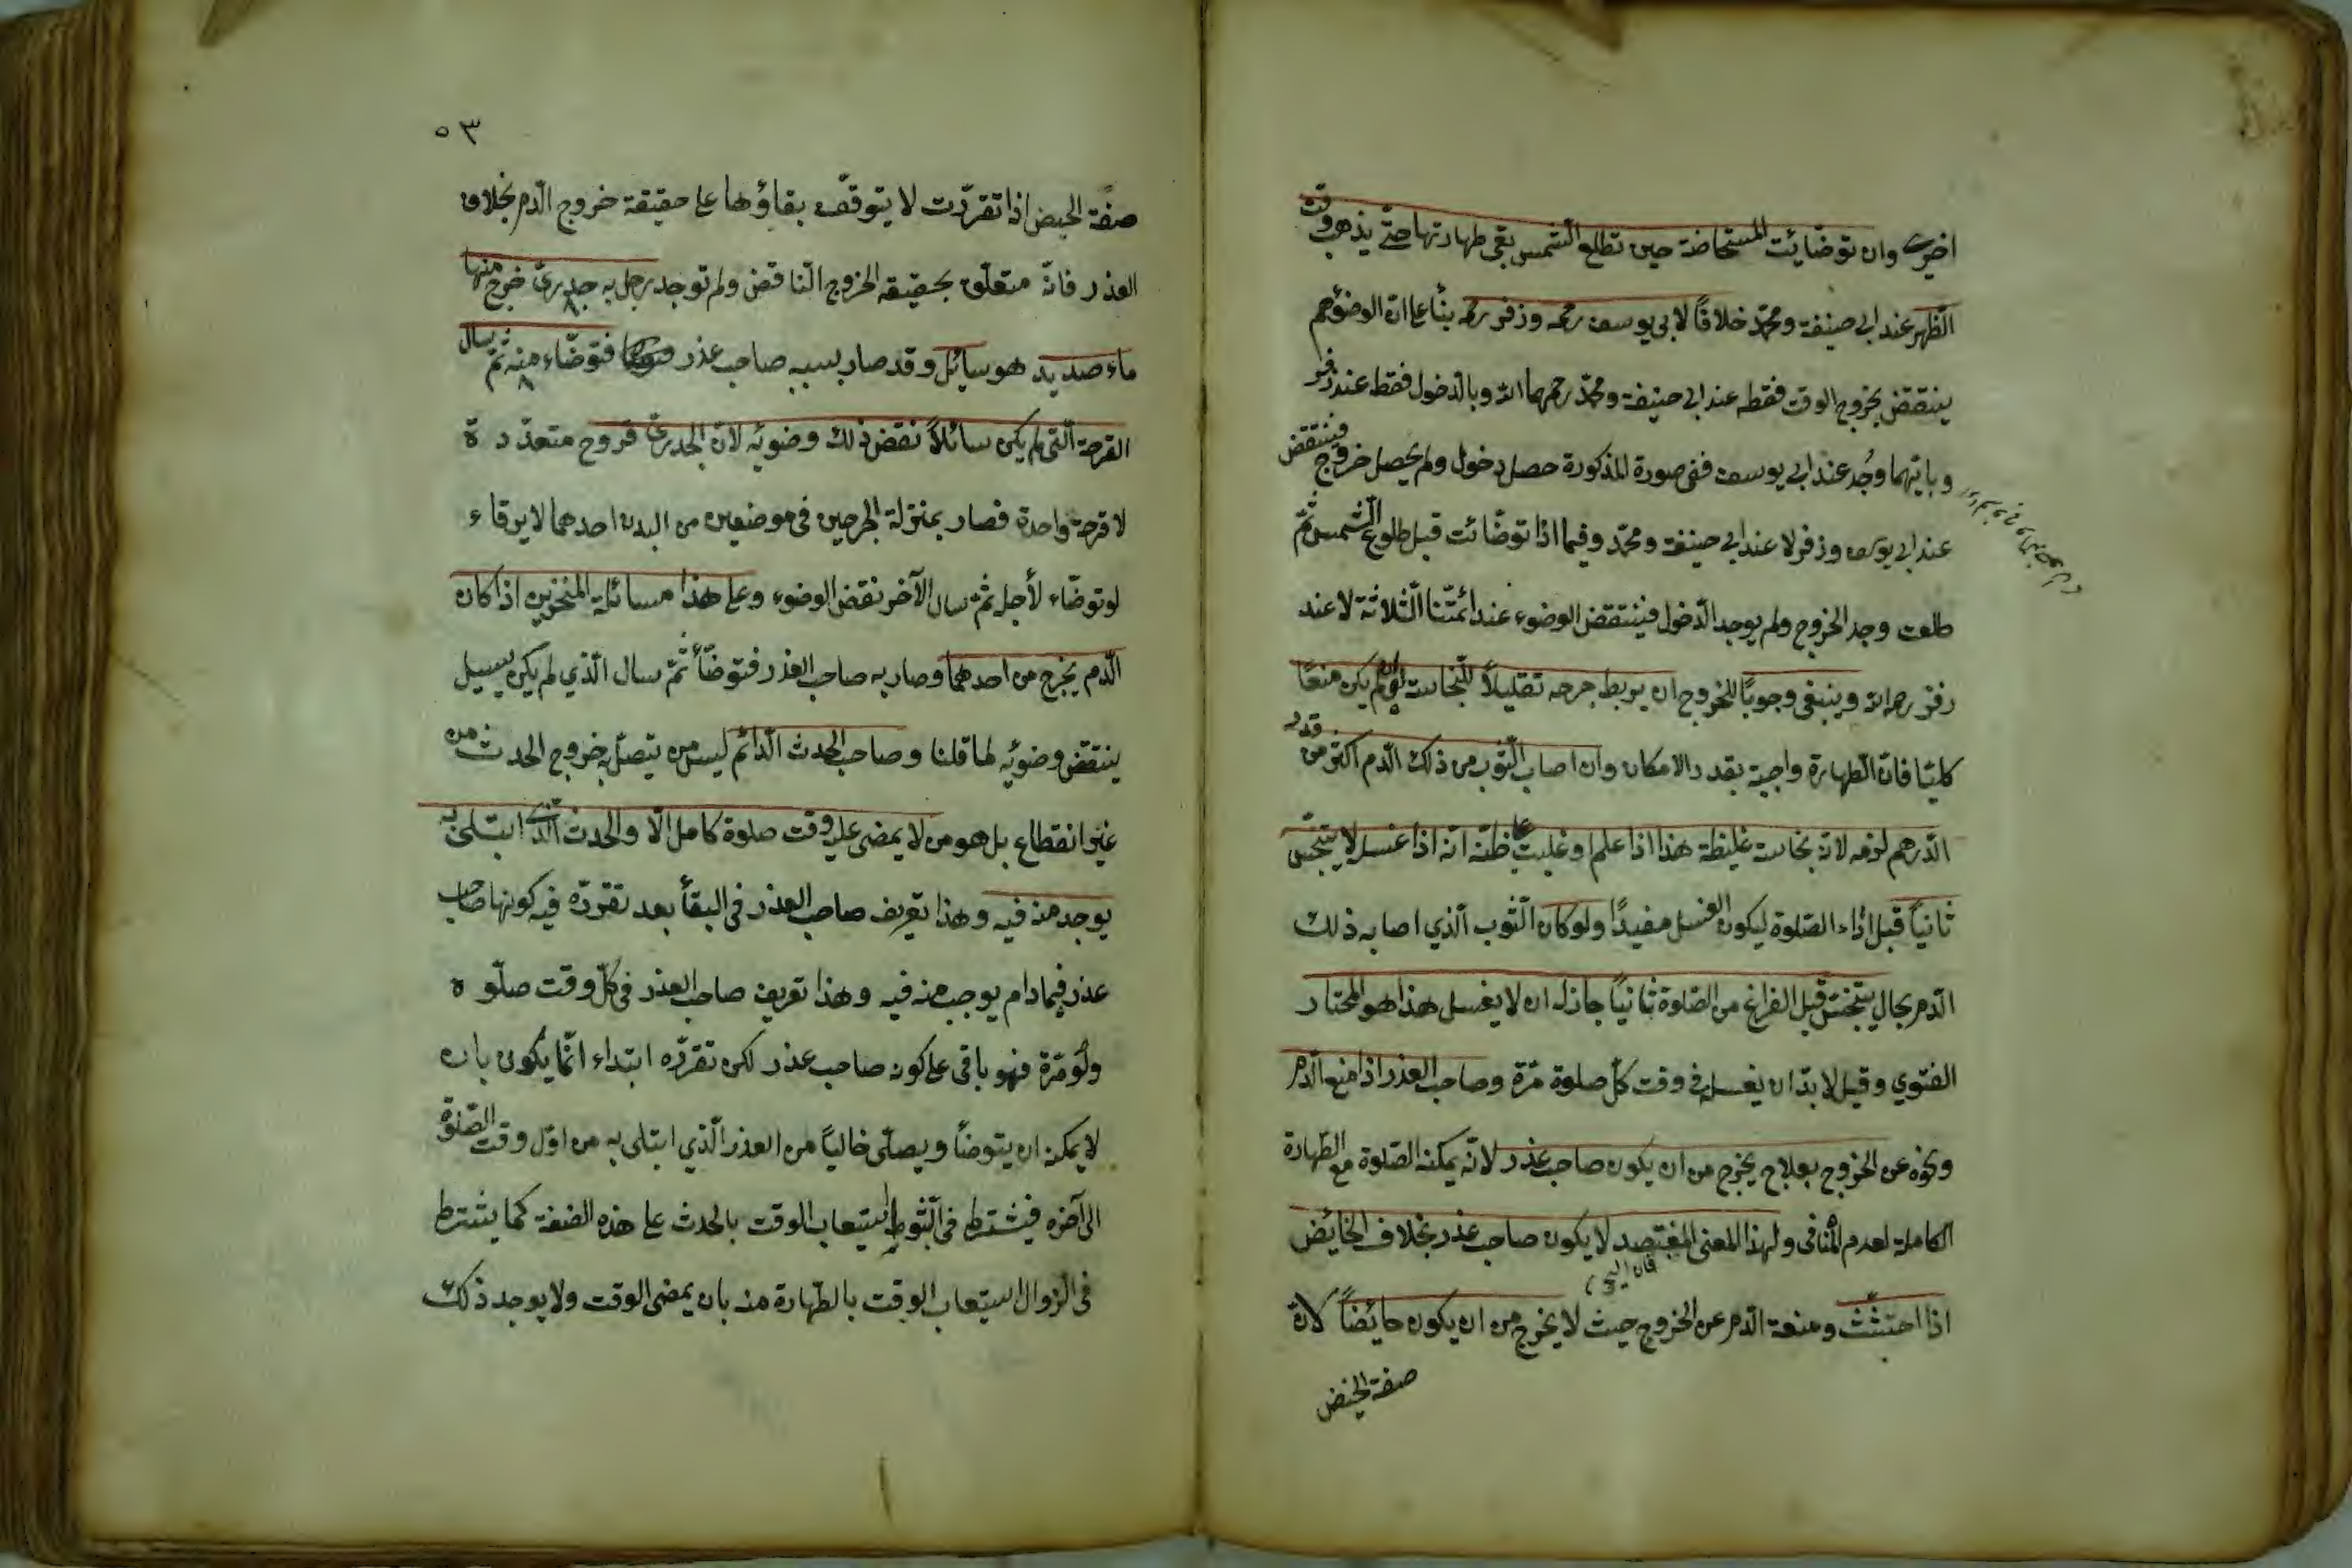 اخرى وان توضائت المستحاضة حين تطلع الشمس بقى طهارتها حتى يذهب وقت
الظهر عند ابى حنيفة ومحمد خلافًا لابى يوسف رحمه وزفر رحمه بنأ على ان الوضؤهم
ينتقض بخروج الوقت فقط عند ابى حنيفة ومحمد رحمهما الله وبالدخول فقط عند زفر
وبايهما وجد عند ابى يوسف ففى صورة المذكورة حصل دخول ولم يحصل خروج فينتقض
عند ابى يوسف وزفر لا عند ابى حنيفة ومحمد وفيما اذا توضائت قبل طلوع الشمس ثم
طلعت وجد الخروج ولم يوجد الدخول فينتقض الوضوء عند ائمتنا الثلاثة لا عند
زفر رحمه الله وينبغى وجوبًا للخروج ان يربط جرحه تقليلاً للنجاسة ان لم يكن منعًا
كليًا فان الطهارة واجبة بقدر الامكان وان اصاب الثوب من ذلك الدم اكثر من قدر
الدرهم لزمه لانه نجاسة غليظة هذا اذا علم او غلبت على ظنه انه اذا غسل لا يتنجس
ثانيًا قبل اداء الصلوة ليكون الغسل مفيدًا ولو كان الثوب الذي اصابه ذلك
الدم بحال يتنجس قبل الفراغ من الصلوة ثانيًا جاز له ان لا يغسل هذا هو المختار
الفتوي وقيل لابد ان يغسله فى وقت كل صلوة مرة وصاحب العذر اذا منع الدم
ونحوه عن الخروج بعلاج يخرج من ان يكون صاحب عذر لانه يمكنه الصلوة مع الطهارة
الكاملة لعدم المنافى ولهذا المعنى المفتصد لا يكون صاحب عذر بخلاف الحائض
اذا احتشت ومنعة الدم عن الخروج حيث لا يخرج من ان يكون حائضًا لان
صفة الحيض
٥٣
صفة الحيض اذا تقررت لا يتوقف بقاؤها على حقيقة خروج الدم بخلاف
العذر فانه متعلق بحقيقة الخروج الناقض ولم توجد رجل به جدرى خرج منها
ماء صديد هو سائل وقد صار بسببه صاحب عذر فتوضاء منه ثم سال
القرحة التى لم يكن سائلاً نقض ذلك وضوئه لان الجدرى قروح متعددة
لا قرحة واحدة فصار بمنزلة الجرحين فى موضعين من البدن احدهما لا يرقاء
لو توضاء لأجله ثم سال الآخر نقض الوضوء وعلى هذا مسائلة المنخرين اذا كان
الدم يخرج من احدهما وصار به صاحب العذر فتوضأ ثم سال الذي لم يكن يسيل
ينتقض وضوئه لما قلنا وصاحب الحدث الدائم ليس من يتصل به خروج الحدث من
غير انقطاع بل هو من لا يمضى عليه وقت صلوة كامل الا والحدث الذى ابتلى به
يوجد منه فيه وهذا تعريف صاحب العذر فى البقأ بعد تقرره فيه كونها صاحب
عذر فيما دام يوجب منه فيه وهذا تعريف صاحب العذر فى كل وقت صلوة
ولو مرة فهو باقى على كون صاحب عذر لكن تقرره ابتداء انما يكون بان
لا يمكن ان يتوضأ ويصلى خاليًا من العذر الذي ابتلى به من اول وقت الصلوة
الى آخره فيشترط فى الثبوط استيعاب الوقت بالحدث على هذه الصفة كما يشترط
فى الزوال استيعاب الوقت بالطهارة منه بان يمضى الوقت ولا يوجد ذلك